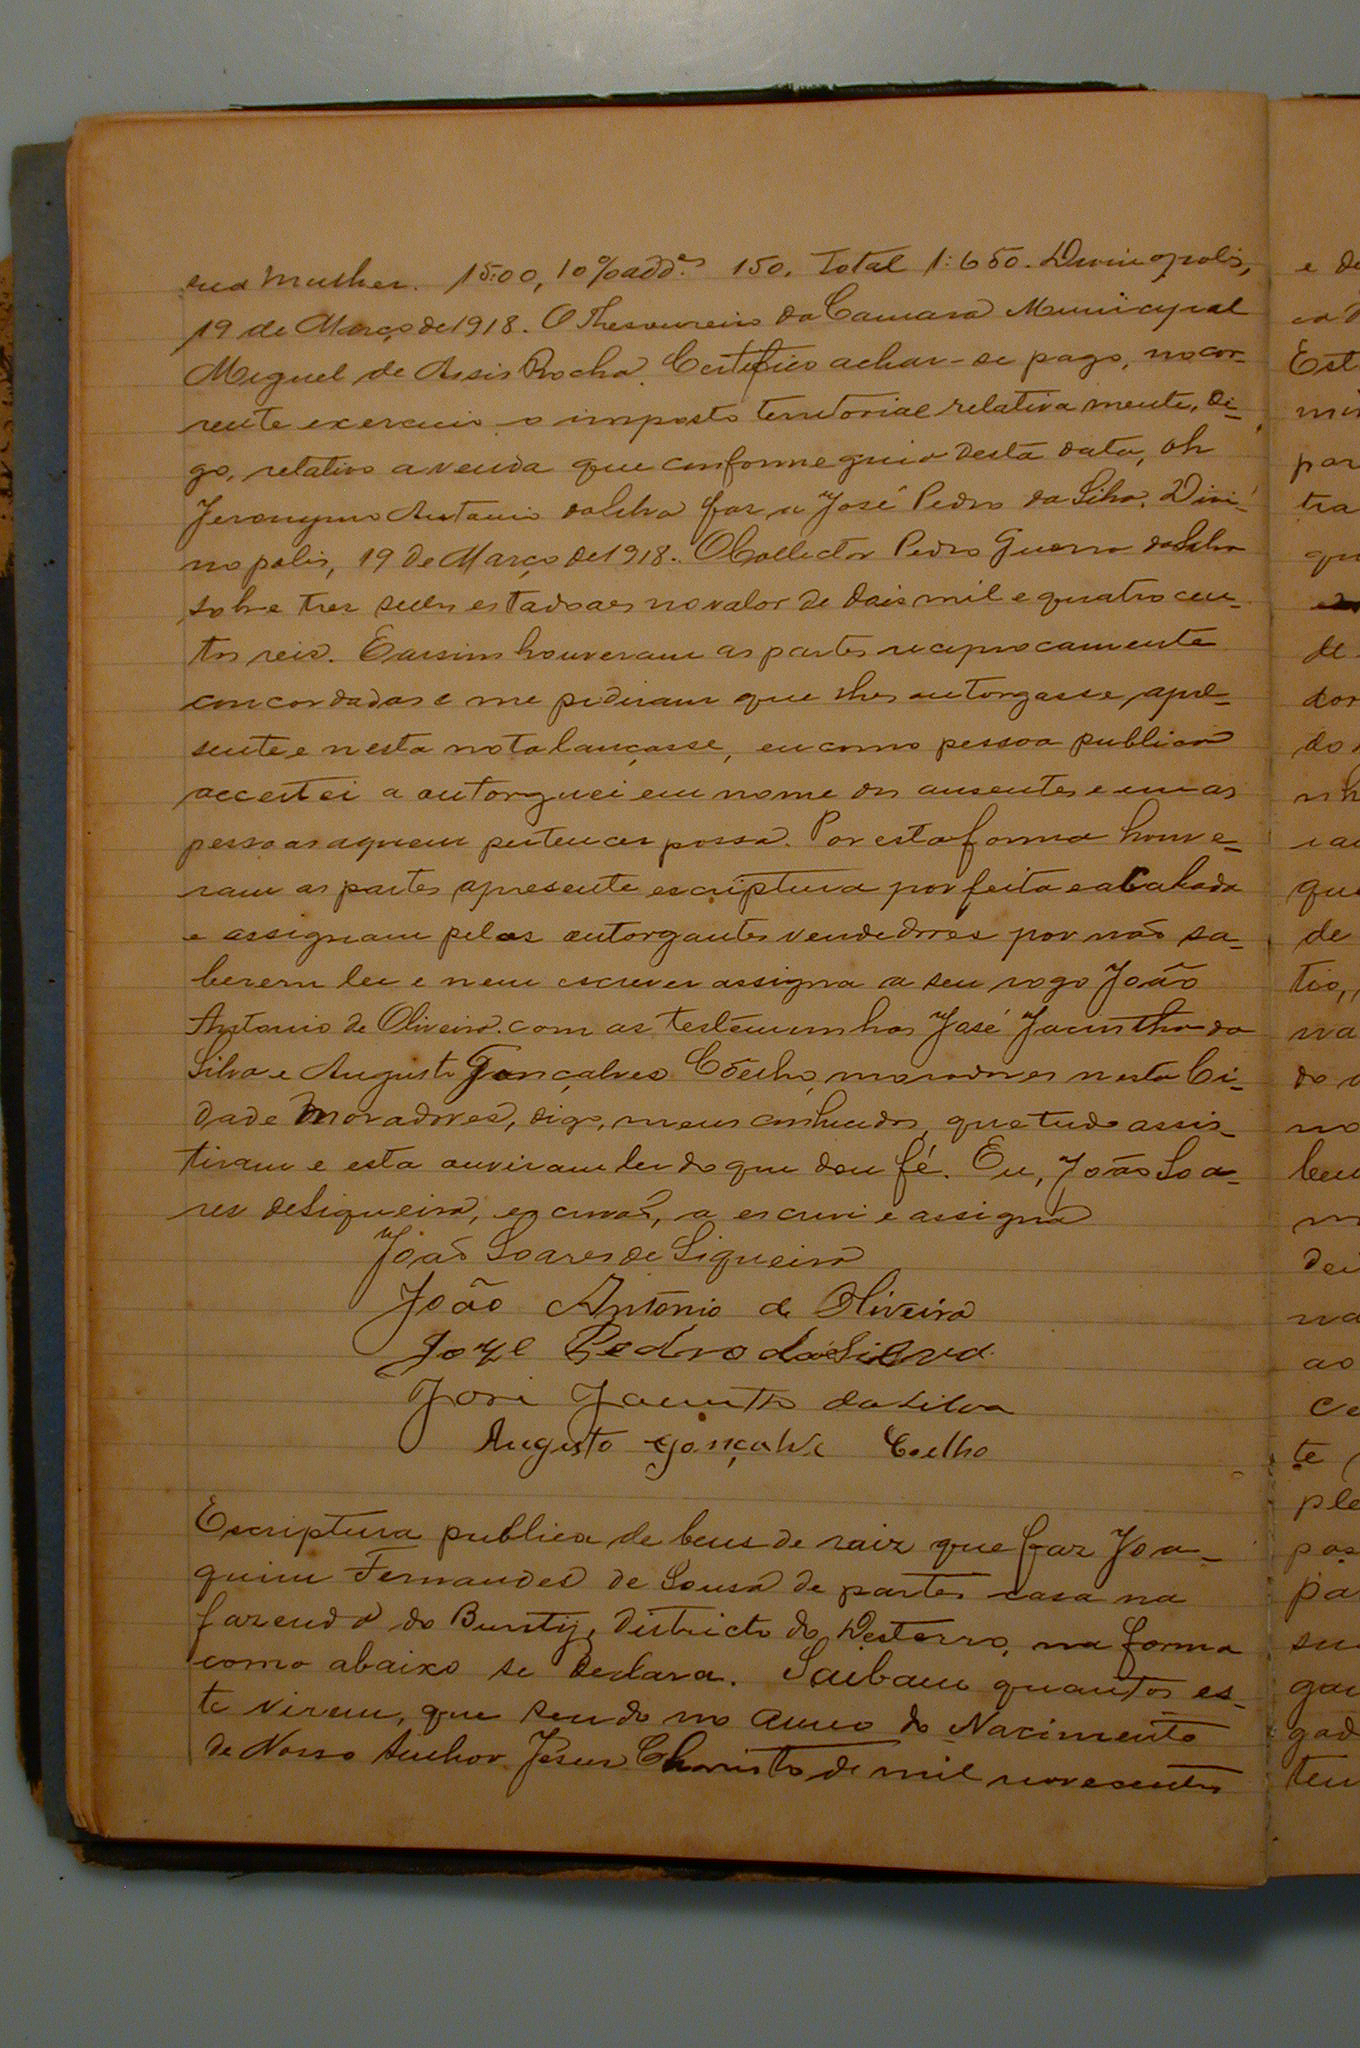 sua mulher. 1500, 10% add.es 150. Total 1:650. Divinopolis,
19 de Março de 1918. O Thesoureiro da Camara Municipal
Miguel de Assis Rocha. Certifico achar-se pago, no cor-
rente exercicio o imposto territorial relativamente, di-
go, relativo a venda que conforme guia desta data,
Jeronymo Antonio da Silva faz a José Pedro da Silva. Divi-
nopolis, 19 de Março de 1918. O Collector Pedro Guerra da Silva
sobre tres sellos estadoaes no valor de dois mil e quatrocen-
tos reis. E assim houveram as partes reciprocamente
concordadas e me pediram que lhes outorgasse apre-
sente e nesta nota lançasse, eu como pessoa publica
acceitei a outorguei em nome dos ausentes e mas
pessoas aquem pertencer possa. Por esta forma houve-
ram as partes apresente escriptura por feita e acabada
e assignam pelos outorgantes vendedores por não sa-
berem ler e nem escrever assigna a seu rogo João
Antonio de Oliveira com as testemunhas José Jacintho da
Silva e Augusto Gonçalves Coelho, moradores nesta Ci-
dade moradores, digo, meus conhecidos, que tudo assis-
tiram e esta ouviram ler do que dou fé. Eu, João Soa-
res de Siqueira, escrivão, a escrevi e assigna
João Soares de Siqueira
João Antonio de Oliveira
Joze Pedro da Silva
José Jacintho da Silva
Augusto Gonçalve Coelho
Escriptura publica de bens de raiz que faz Joa-
quim Fernandes de Sousa de partes casa na
fazenda do Burity, districto do Desterro, na forma
como abaixo se declara. Saibam quantos es-
te virem, que sendo no anno do Nacimento
de Nosso Senhor Jesus Christo de mil novecentos